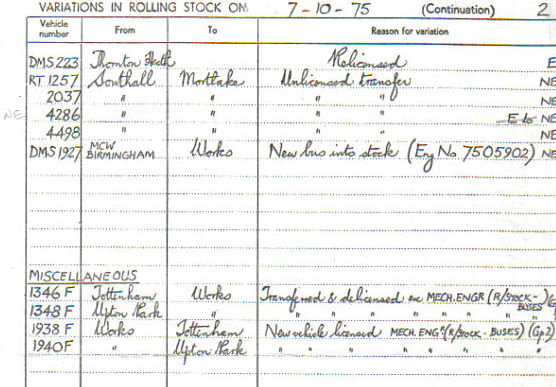 VARIATIONS IN ROLLING STOCK ON 7-10-75 (Continuation) 2
Vehicle number From To Reason for variation
DMS 223 Thornton Heath Relicensed E
RT 1257 Southall Mortlake Unlicensed transfer NE
2037 " " " " NE
NE 4286 " " " " E to NE
4498 " " " " NE
DMS 1927 MCW BIRMINGHAM Works New bus into stock (Eng No 7505902) NE
MISCELLANEOUS
1346 F Tottenham Works Transferred & delicensed ex MECH. ENGR (R/STOCK - BUSES)
1348 F Upton Park " " " " " " " "
1938 F Works Tottenham New vehicle licensed MECH. ENGR (R/STOCK - BUSES) (Gp2)
1940 F " Upton Park " " " " " " "